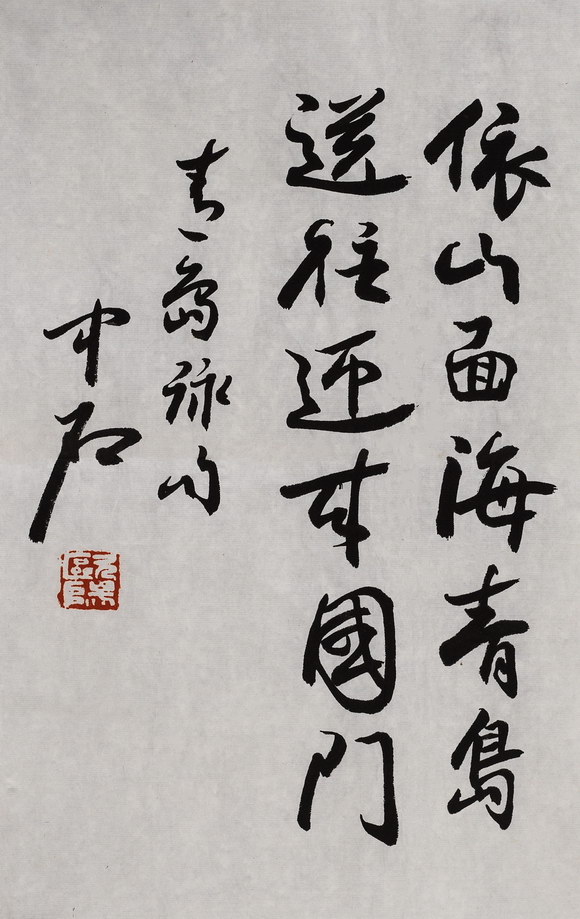 依山面海青島
送往迎来國門
青島詠句
中石